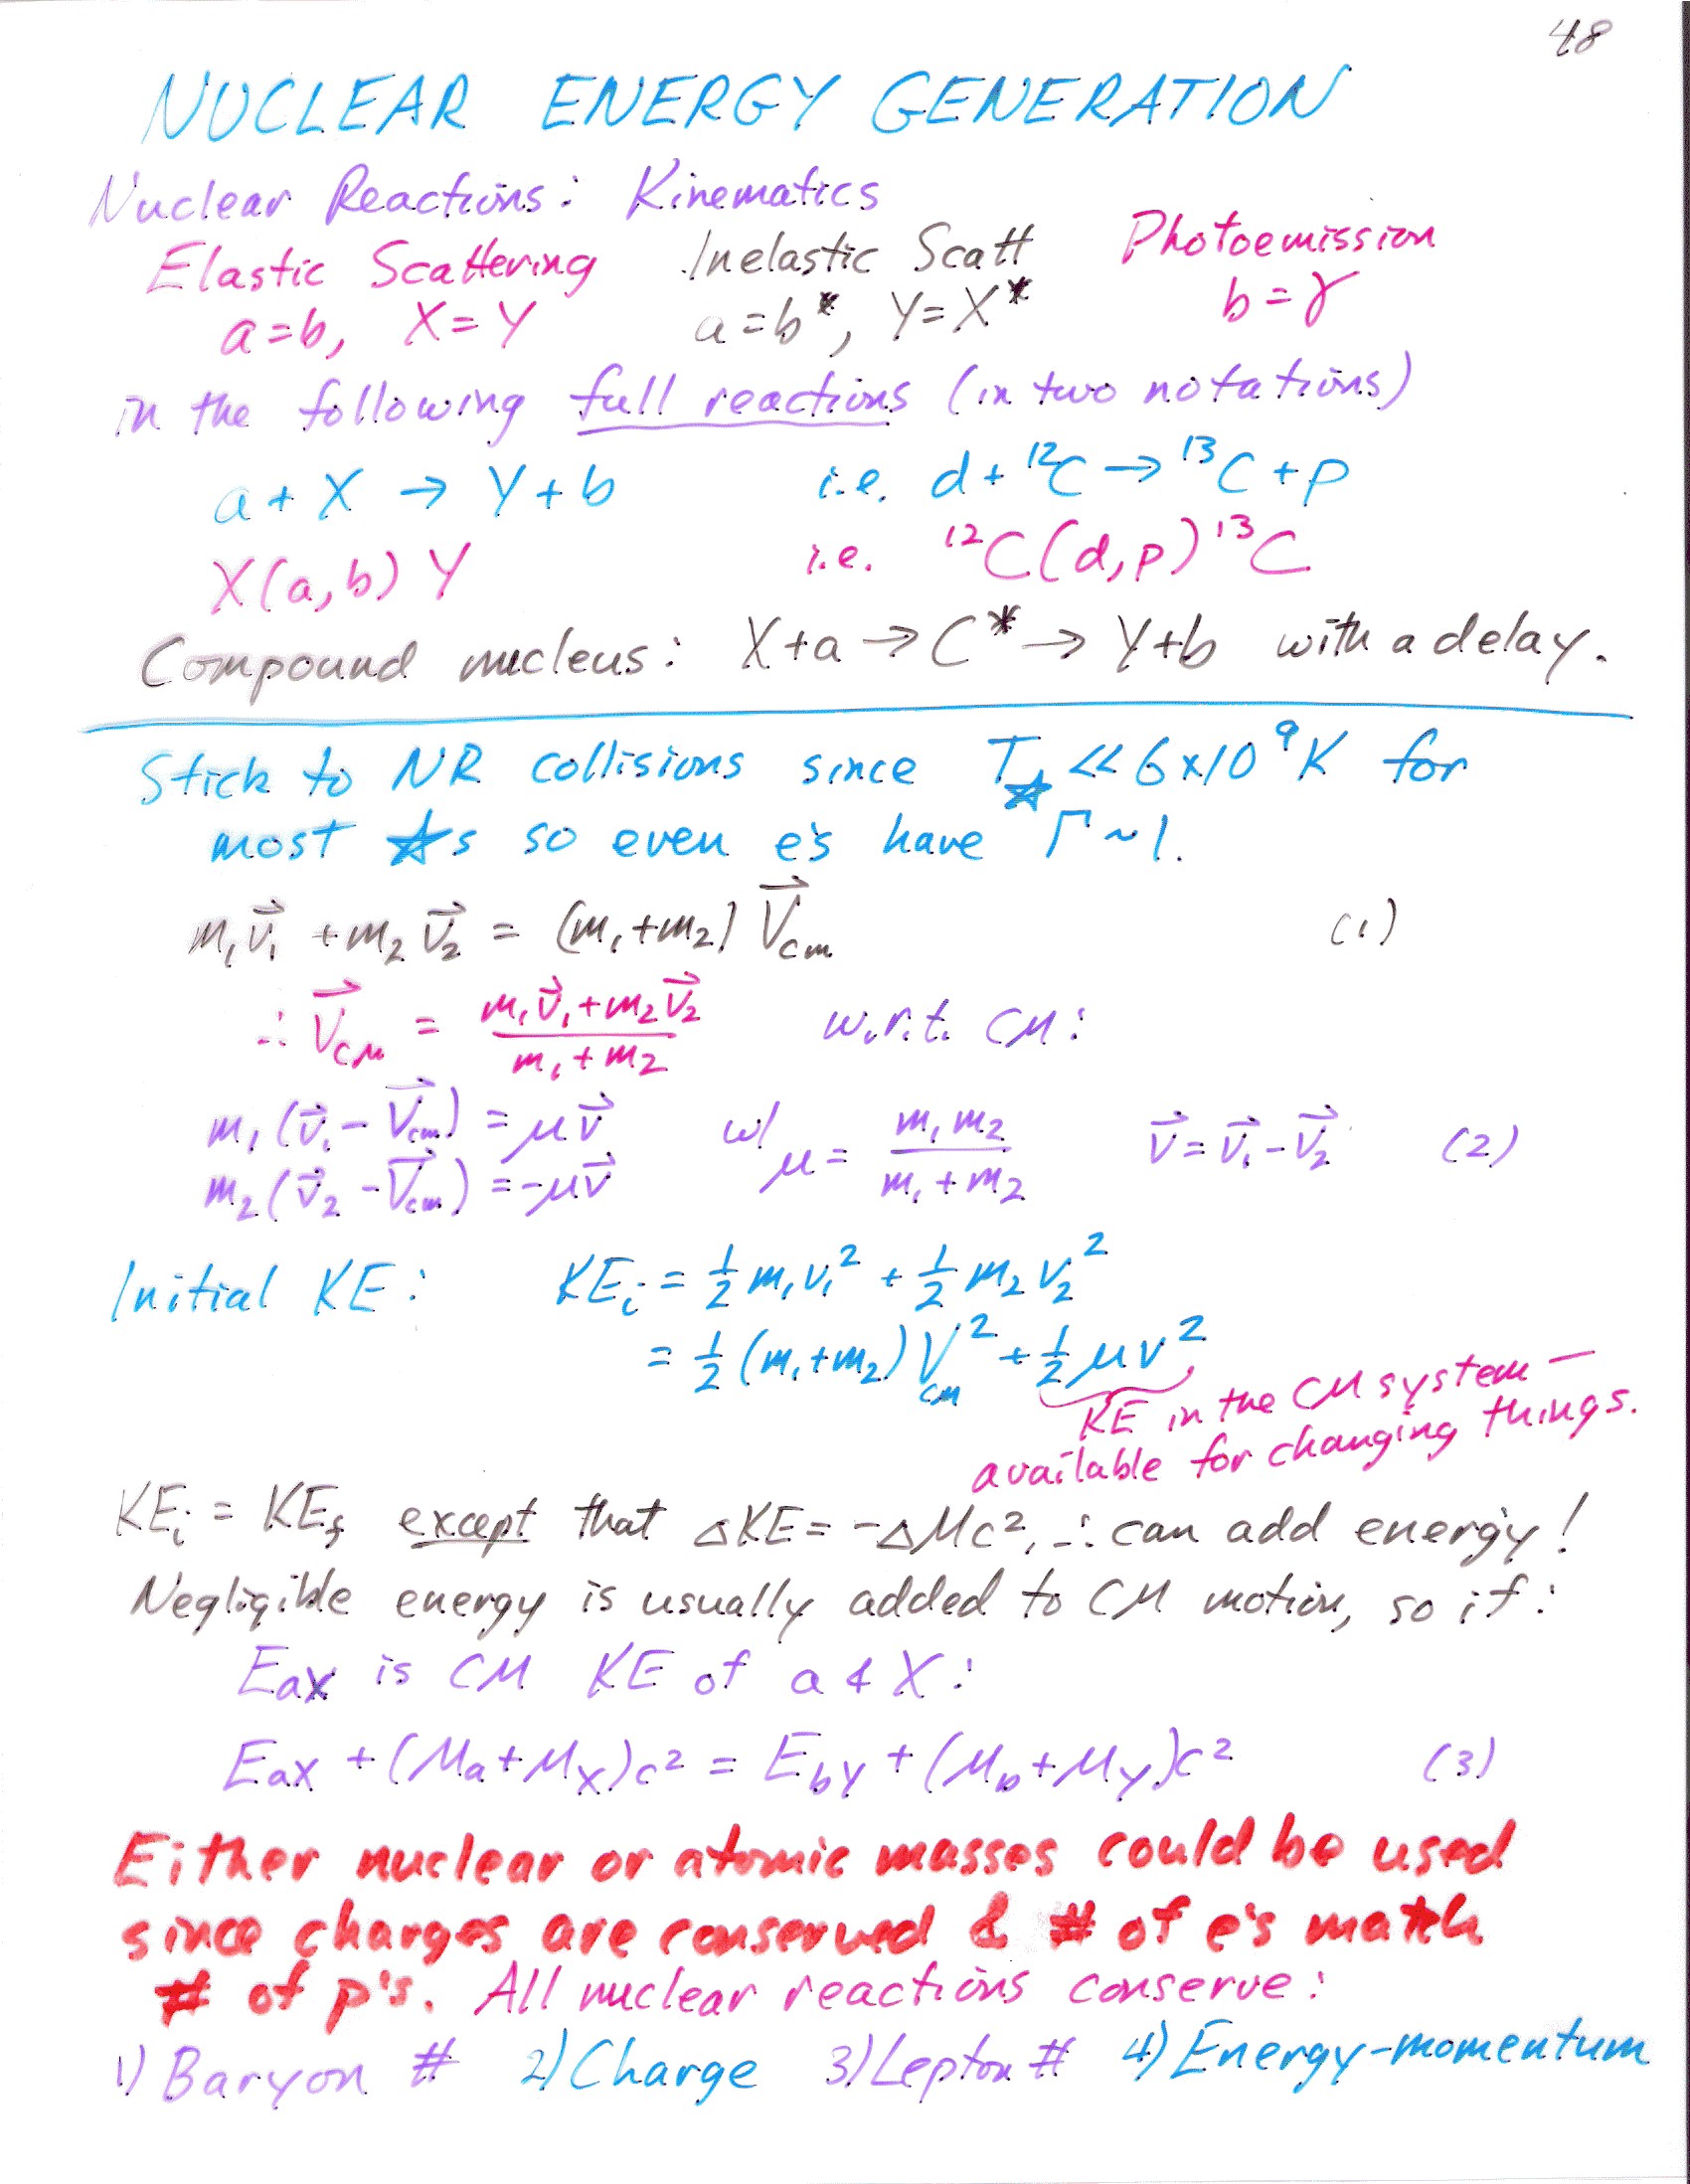 48
NUCLEAR ENERGY GENERATION
Nuclear Reactions: Kinematics
Elastic Scattering Inelastic Scatt Photoemission
a=b, X=Y a=b*, Y=X* b=γ
in the following full reactions (in two notations)
a+X → Y+b i.e. d+ ¹²C → ¹³C+p
X(a,b)Y i.e. ¹²C(d,p)¹³C
Compound nucleus: X+a → C* → Y+b with a delay.
Stick to NR collisions since T☆ << 6×10⁹K for
most ☆s so even e's have Γ~1.
m₁v⃗₁ + m₂v⃗₂ = (m₁+m₂) V⃗cm (1)
∴ V⃗CM = (m₁v⃗₁+m₂v⃗₂)/(m₁+m₂) w.r.t. CM:
m₁(v⃗₁-V⃗cm) = μv⃗ w/ μ = m₁m₂/(m₁+m₂) v⃗=v⃗₁-v⃗₂ (2)
m₂(v⃗₂-V⃗cm) = -μv⃗
Initial KE: KEᵢ = ½m₁v₁² + ½m₂v₂²
= ½(m₁+m₂)V²cm + ½μv²
KE in the CM system —
available for changing things.
KEᵢ = KEf except that ΔKE = -ΔMc², ∴ can add energy!
Negligible energy is usually added to CM motion, so if:
EaX is CM KE of a & X:
EaX + (Ma+MX)c² = EbY + (Mb+MY)c² (3)
Either nuclear or atomic masses could be used
since charges are conserved & # of e's match
# of p's. All nuclear reactions conserve:
1) Baryon # 2) Charge 3) Lepton # 4) Energy-momentum